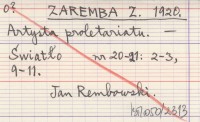 03 ZAREMBA Z. 1920.
Artysta proletariatu. —
Światło nr 20-21: 2-3,
9-11.
Jan Rembowski.